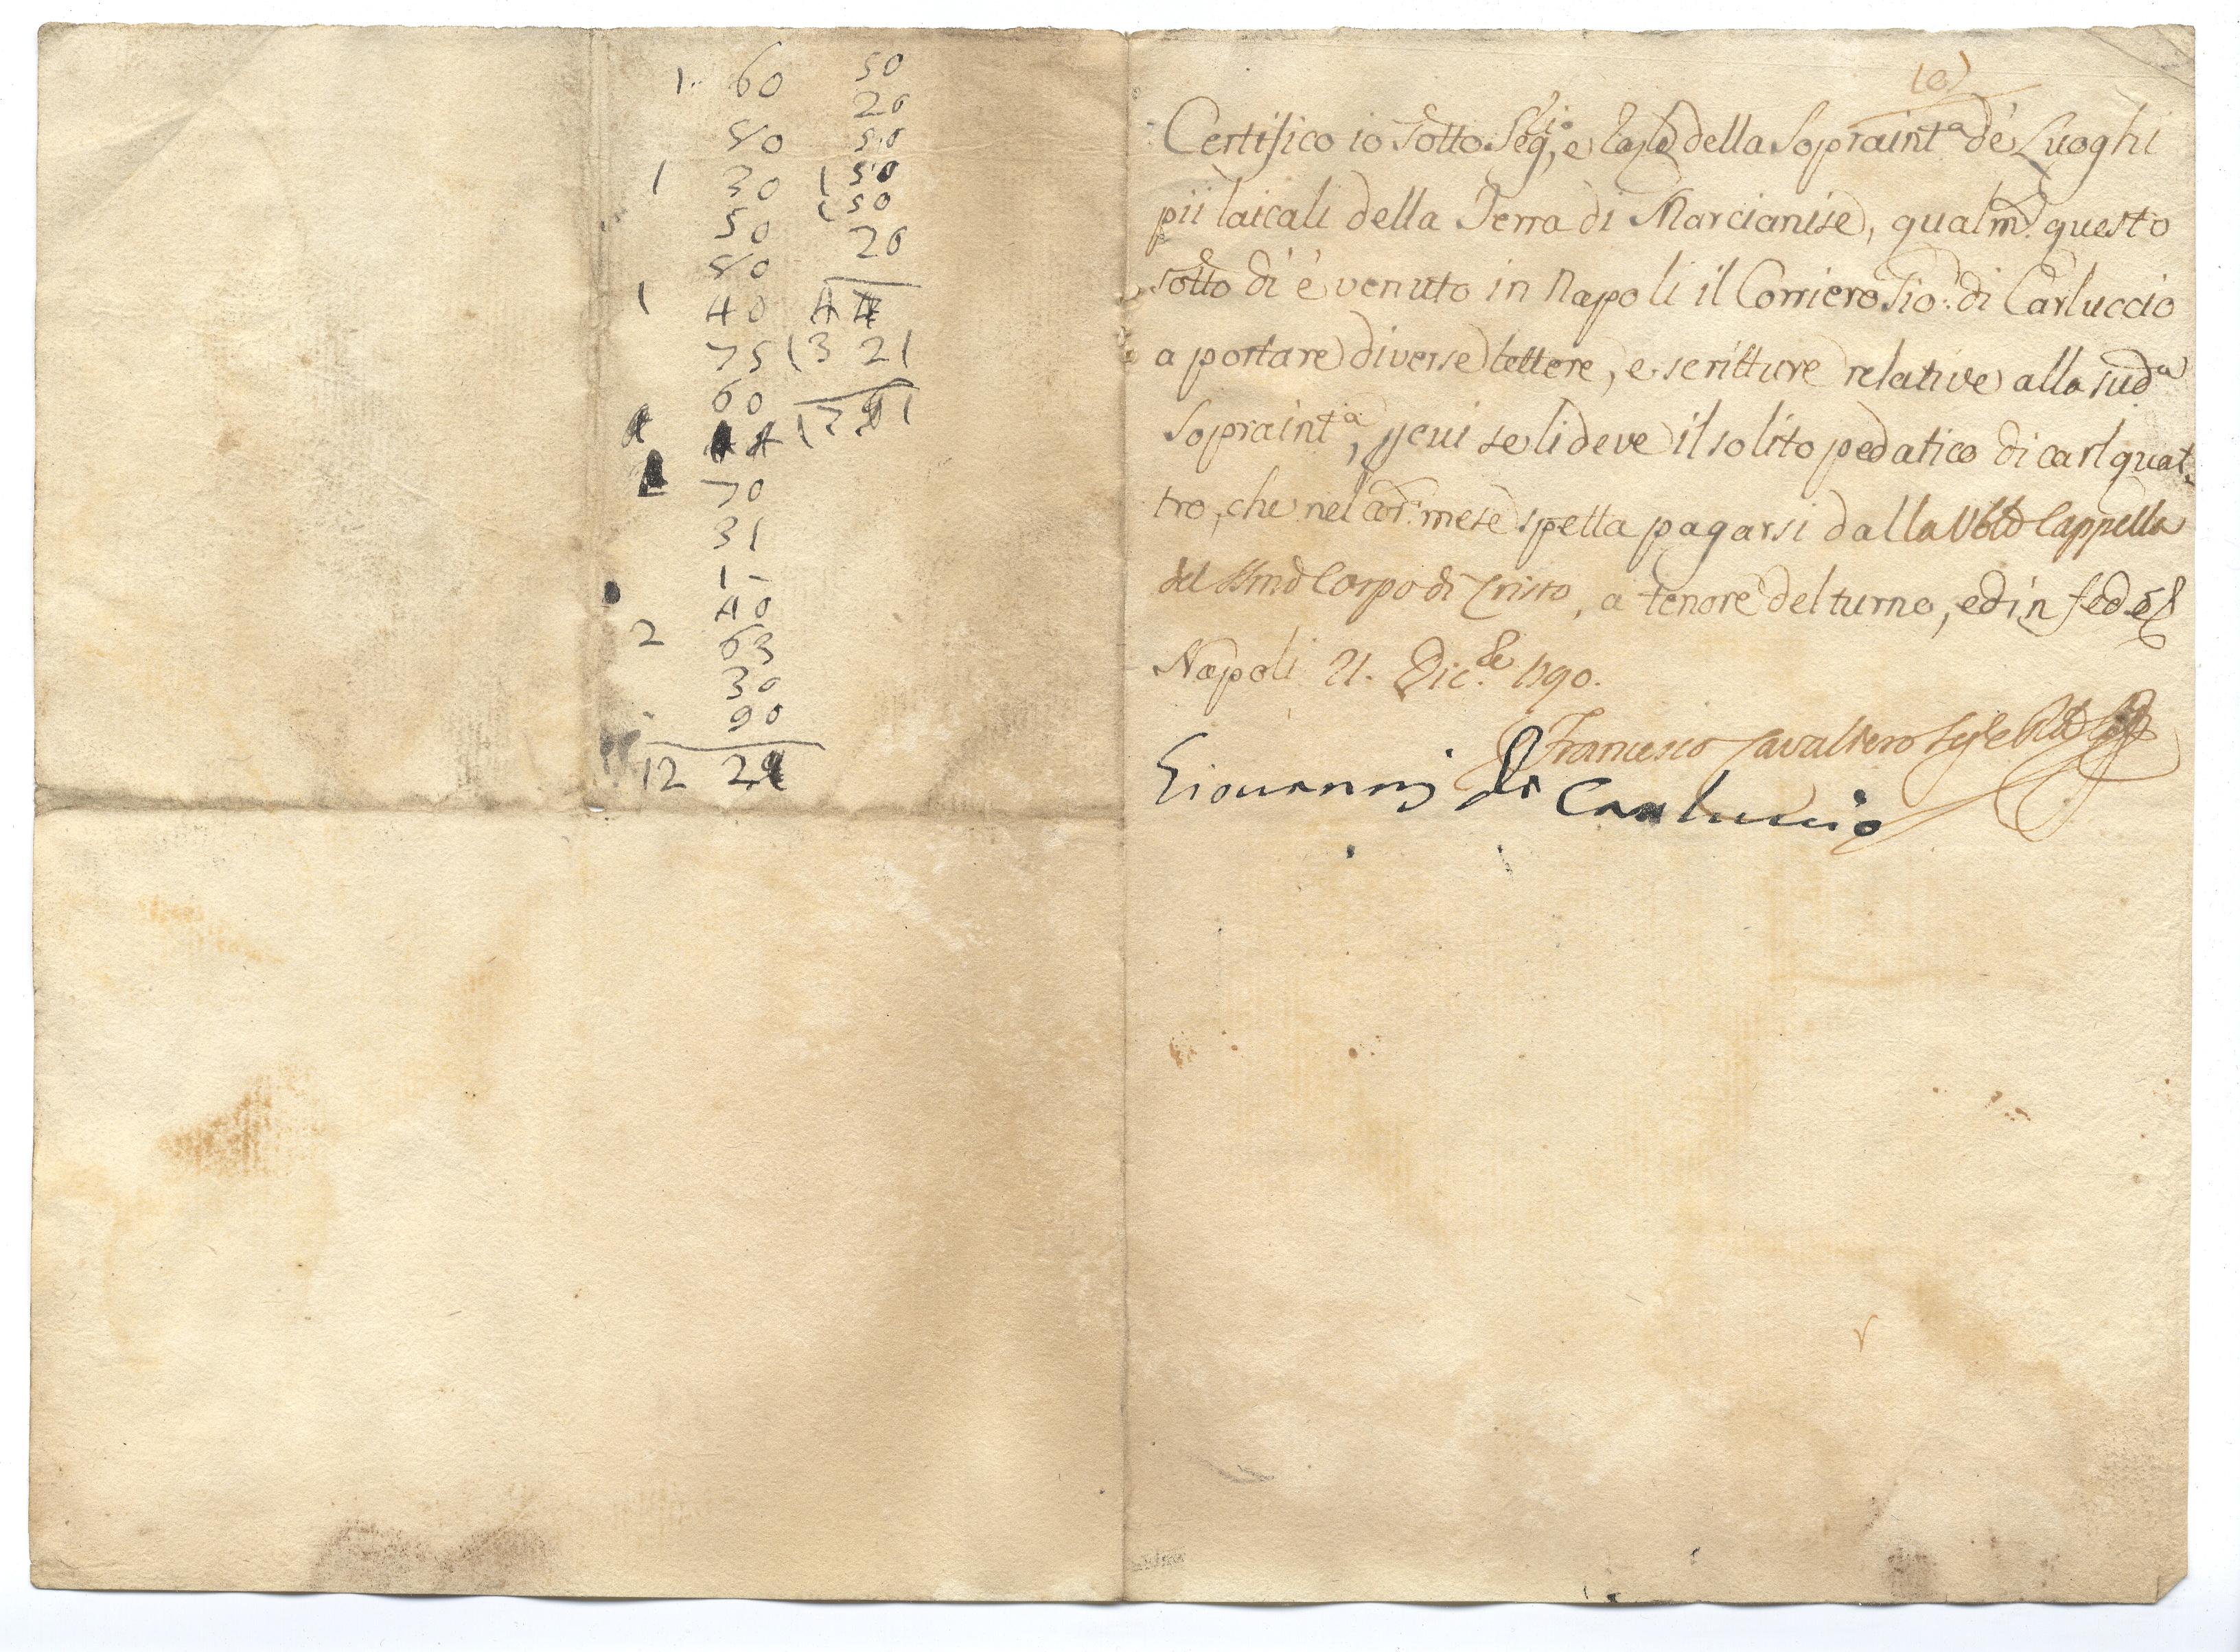 1. 60 50
20
50 50
1 30 (50
50 (50
20
50
1 40
75 (3 21
60
70
31
1-
40
2 63
30
90
12
(6)
Certifico io Sotto Seg.rio, e della Sopraint.a de' Luoghi
pii laicali della Terra di Marcianise, qualm.e questo
sotto dì è venuto in Napoli il Corriero Gio: di Carluccio
a portare diverse lettere, e scritture relative alla sud.a
Sopraint.a, p cui se li deve il solito pedatico di carl. quat-
tro, che nel cor.e mese spetta pagarsi dalla Cappella
del SSmo Corpo di Cristo, a tenore del turno, ed in fede
Napoli 21. Dic.e 1790.
Francesco Cavaliero
Giovanni di Carluccio